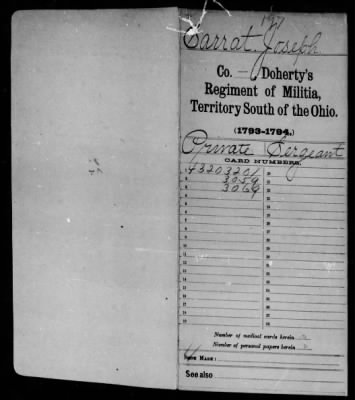 Carrat, Joseph
Co. — Doherty's
Regiment of Militia,
Territory South of the Ohio.
(1793-1794.)
Private Sergeant
CARD NUMBERS.
43203201
3059
3069
Number of medical cards herein 0
Number of personal papers herein 0
BOOK MARK:
See also